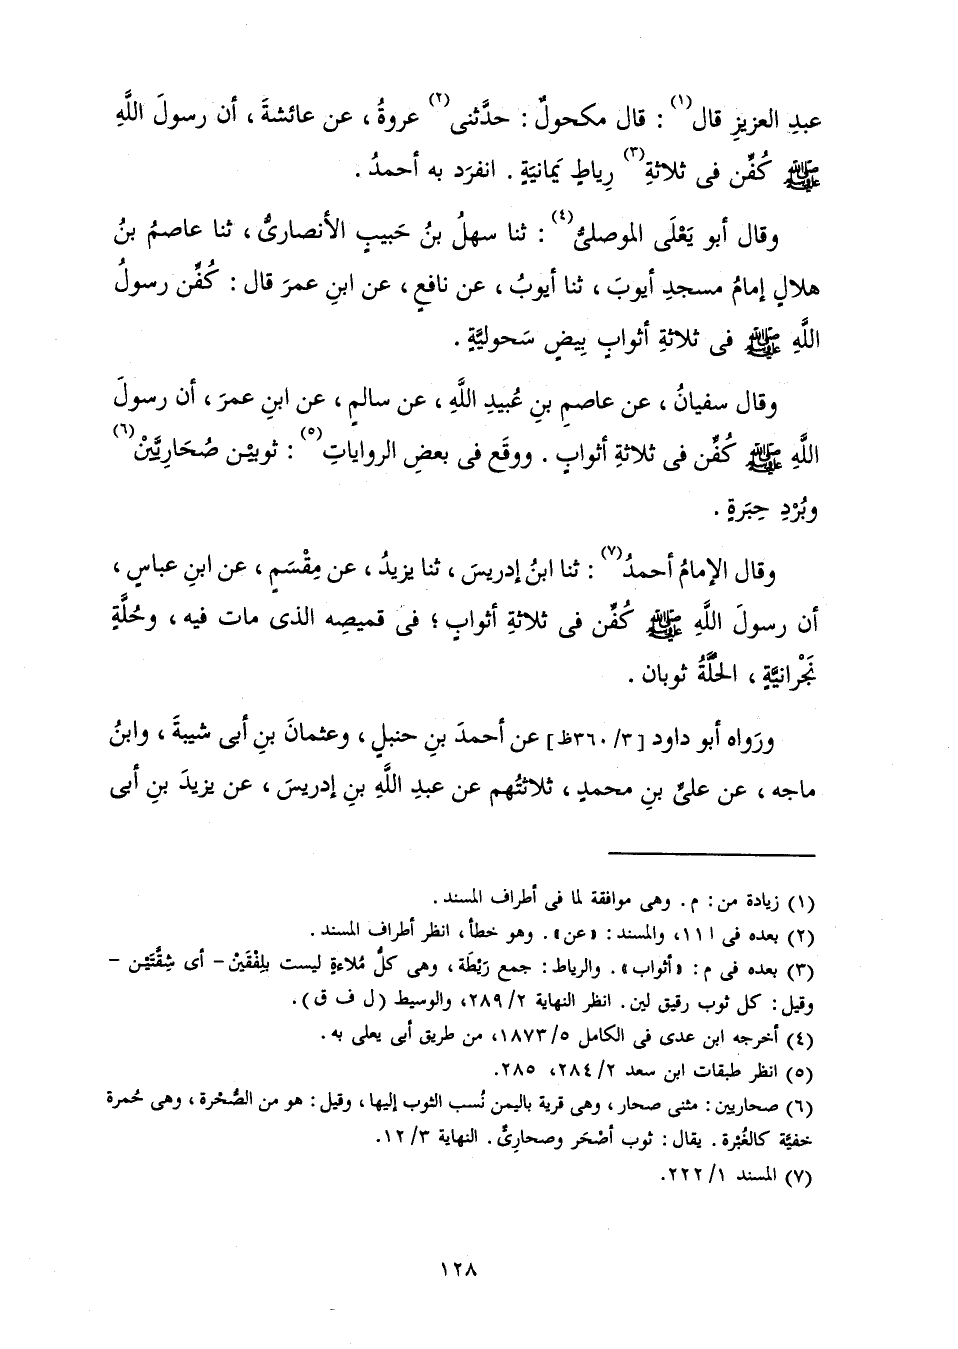 عبدِ العزيزِ قال(١) : قال مكحولٌ : حدَّثنى(٢) عروةُ ، عن عائشةَ ، أن رسولَ اللَّهِ
ﷺ كُفِّن فى ثلاثةِ(٣) رِياطٍ يَمانيَةٍ . انفرَد به أحمدُ .
وقال أبو يَعْلَى الموصلىُّ(٤) : ثنا سهلُ بنُ حَبيبٍ الأنصارىُّ ، ثنا عاصمُ بنُ
هلالٍ إمامُ مسجدِ أيوبَ ، ثنا أيوبُ ، عن نافعٍ ، عن ابنِ عمرَ قال : كُفِّن رسولُ
اللَّهِ ﷺ فى ثلاثةِ أثوابٍ بِيضٍ سَحوليَّةٍ .
وقال سفيانُ ، عن عاصمِ بنِ عُبيدِ اللَّهِ ، عن سالمٍ ، عن ابنِ عمرَ ، أن رسولَ
اللَّهِ ﷺ كُفِّن فى ثلاثةِ أثوابٍ . ووقَع فى بعضِ الرواياتِ(٥) : ثوبيْن صُحَارِيَّيْنْ(٦)
وبُرْدِ حِبَرةٍ .
وقال الإمامُ أحمدُ(٧) : ثنا ابنُ إدريسَ ، ثنا يزيدُ ، عن مِقْسَمٍ ، عن ابنِ عباسٍ ،
أن رسولَ اللَّهِ ﷺ كُفِّن فى ثلاثةِ أثوابٍ ؛ فى قميصِه الذى مات فيه ، وحُلَّةٍ
نَجْرانيَّةٍ ، الحُلَّةُ ثوبان .
ورَواه أبو داود [٣/ ٣٦٠ظ] عن أحمدَ بنِ حنبلٍ ، وعثمانَ بنِ أبى شيبةَ ، وابنُ
ماجه ، عن علىِّ بنِ محمدٍ ، ثلاثتُهم عن عبدِ اللَّهِ بنِ إدريسَ ، عن يزيدَ بنِ أبى
(١) زيادة من : م . وهى موافقة لما فى أطراف المسند .
(٢) بعده فى ا ١١، والمسند : «عن» . وهو خطأ ، انظر أطراف المسند .
(٣) بعده فى م : «أثواب» . والرياط : جمع رَيْطَة ، وهى كلُّ مُلاءةٍ ليست بلِفْقَيْن - أى شِقَّتَيْن -
وقيل : كل ثوب رقيق لين . انظر النهاية ٢/ ٢٨٩، والوسيط ( ل ف ق ) .
(٤) أخرجه ابن عدى فى الكامل ٥/ ١٨٧٣، من طريق أبى يعلى به .
(٥) انظر طبقات ابن سعد ٢/ ٢٨٤، ٢٨٥.
(٦) صحاريين : مثنى صحار ، وهى قرية باليمن نُسب الثوب إليها ، وقيل : هو من الصُّحْرة ، وهى حُمرة
خفيَّة كالغُبْرة . يقال : ثوب أصْحَر وصحارِىٌّ . النهاية ٣/ ١٢.
(٧) المسند ١/ ٢٢٢.
١٢٨